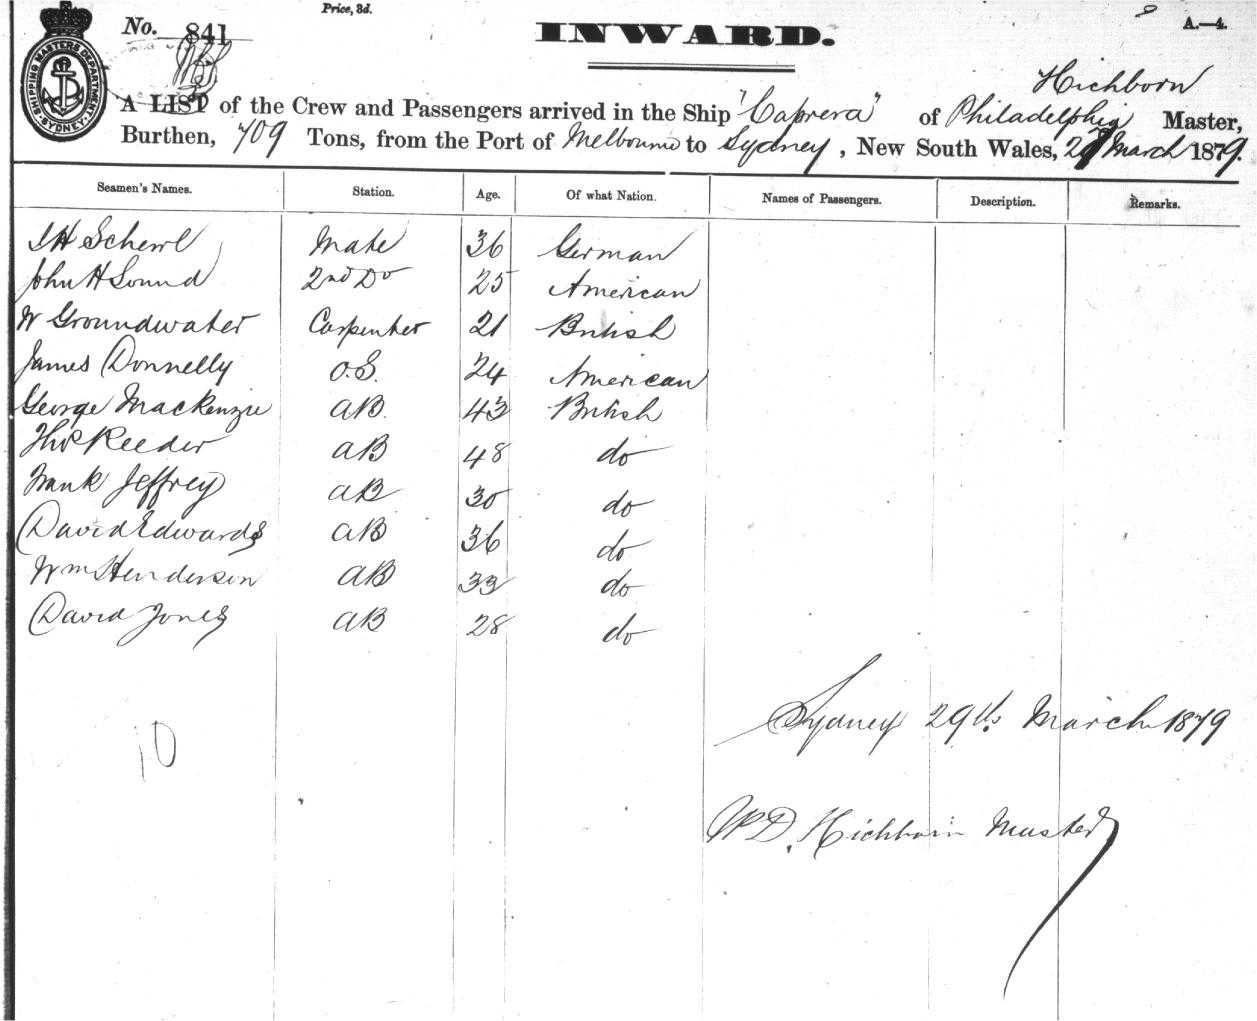 Price, 3d.
No. 841
INWARD.
A.—4.
SHIPPING MASTERS DEPARTMENT. SYDNEY.
Hichborn
A LIST of the Crew and Passengers arrived in the Ship "Caprera" of Philadelphia Master,
Burthen, 709 Tons, from the Port of Melbourne to Sydney, New South Wales, March 1879.
Seamen's Names. Station. Age. Of what Nation. Names of Passengers. Description. Remarks.
Mate 36 German
John H Sound 2nd Do 25 American
W Groundwater Carpenter 21 British
James Donnelly O.S. 24 American
George Mackenzie AB. 43 British
Thos Reeder AB 48 do
Frank Jeffrey AB 30 do
David Edwards AB 36 do
Wm Henderson AB 33 do
David Jones AB 28 do
10
Sydney 29th March 1879
W D. Hichborn Master